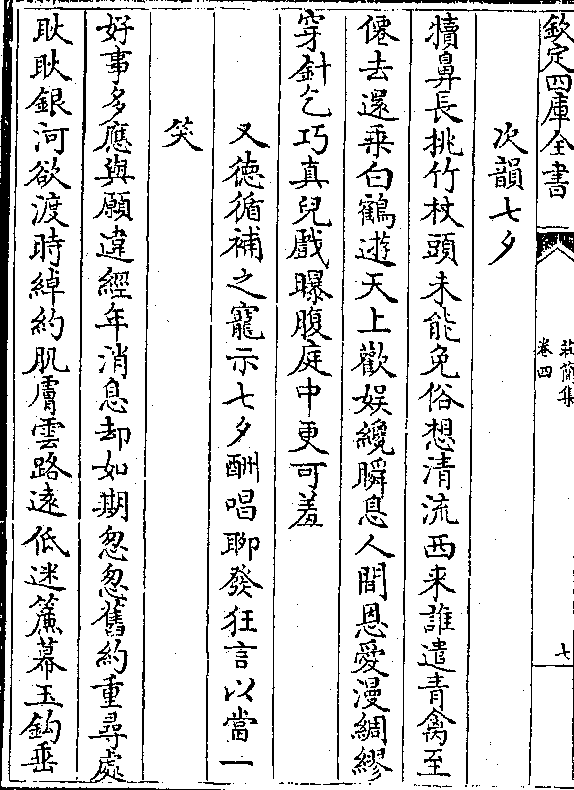 欽定四庫全書
莊簡集
卷四
七
次韻七夕
犢鼻長挑竹杖頭未能免俗想清流西来誰遣青禽至
僊去還乘白鶴遊天上歡娱纔瞬息人間恩愛漫綢繆
穿針乞巧真兒戲曝腹庭中更可羞
又德循補之寵示七夕酬唱聊發狂言以當一
笑
好事多應與願違經年消息却如期怱怱舊約重尋處
耿耿銀河欲渡時綽約肌膚雲路逺低迷簾幕玉鈎垂